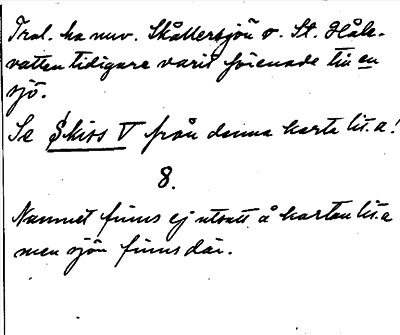 Trol. ha nuv. Skållersjön o. St. Håle-
vatten tidigare varit förenade till en
sjö.
Se Skiss V från denna karta lit. a!
8.
Namnet finns ej utsatt å kartan lit. a
men sjön finns där.